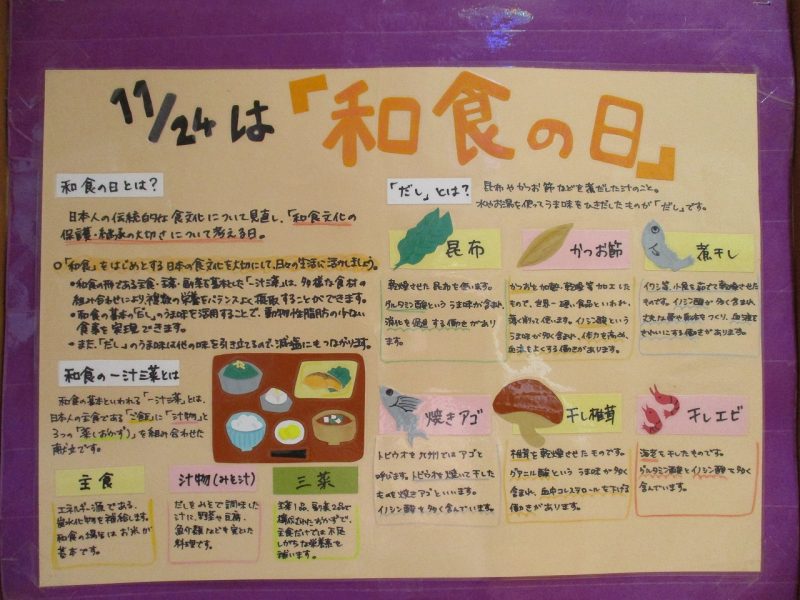 11/24は「和食の日」
和食の日とは?
日本人の伝統的な食文化について見直し、「和食文化の
保護・継承の大切さについて考える日。
○「和食」をはじめとする日本の食文化を大切にして、日々の生活に活かしましょう。
・和食の形である主食・主菜・副菜を基本とした「一汁三菜」は、多様な食材の
組み合わせにより、複数の栄養をバランスよく摂取することができます。
・和食の基本の「だし」のうま味を活用することで、動物性脂肪の少ない
食事を実現できます。
・また、「だし」のうま味は他の味を引き立てるので、減塩にもつながります。
和食の一汁三菜とは
和食の基本といわれる「一汁三菜」とは、
日本人の主食である「ご飯」に「汁物」と
3つの「菜(おかず)」を組み合わせた
献立です。
主食
エネルギー源である、
炭水化物を補給します。
和食の場合はお米が
基本です。
汁物(みそ汁)
だしをみそで調味した
汁に、野菜や豆腐、
魚介類などを実とした
料理です。
三菜
主菜1品、副菜2品で
構成されたおかずで、
主食だけでは不足
しがちな栄養素を
補います。
「だし」とは?
昆布やかつお節などを煮だした汁のこと。
水やお湯を使ってうま味をひきだしたものが「だし」です。
昆布
乾燥させた昆布を使います。
グルタミン酸といううま味が含まれ、
消化を促進する働きがあり
ます。
かつお節
かつおを加熱、乾燥等加工した
もので、世界一硬い食品といわれ、
薄く削って使います。イノシン酸という
うま味が多く含まれ、体力を高め、
血流をよくする働きがあります。
煮干し
イワシ等、小魚を茹でて乾燥させた
ものです。イノシン酸が多く含まれ、
丈夫な骨や歯をつくり、血液を
きれいにする働きがあります。
焼きアゴ
トビウオを九州ではアゴと
呼びます。トビウオを焼いて干した
ものを焼きアゴといいます。
イノシン酸を多く含んでいます。
干し椎茸
椎茸を乾燥させたものです。
グアニル酸というううま味が多く
含まれ、血中コレステロールを下げる
働きがあります。
干しエビ
海老を干したものです。
グルタミン酸とイノシン酸を多く
含んでいます。